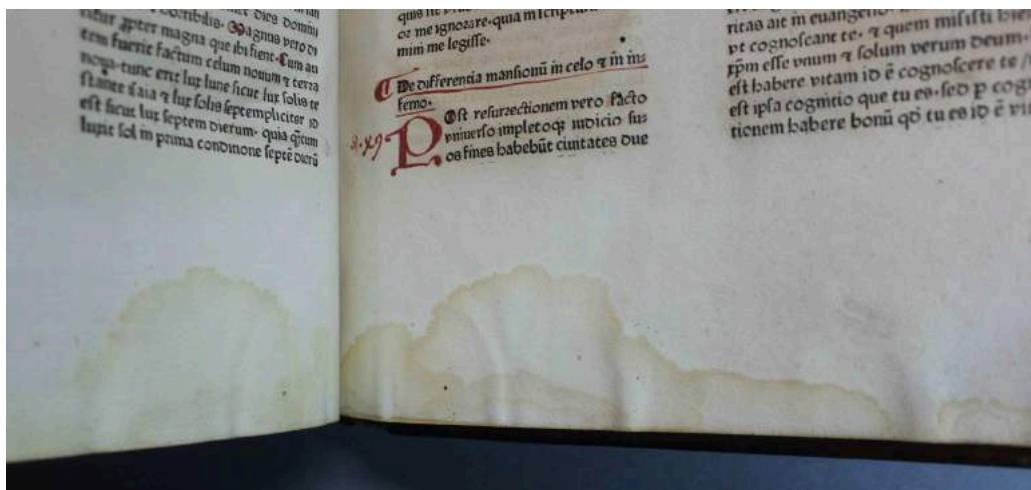 dies domini
orribilis. Magnus vero di
citur ꝓpter magna que ibi fient. Cum au
tem fuerit factum celum nouum ⁊ terra
noua tunc erit lux lune sicut lux solis te
stante isaia ⁊ lux solis septempliciter id
est sicut lux septem dierum. quia qͣtum
luxit sol in prima condinone septē dierū
os me ignorare. quia in scriptura
mini me legisse.
De differentia mansionū in celo ⁊ in in
ferno.
Post resurrectionem vero facto
vniuerso impletoqꝫ iudicio su
os fines habebūt ciuitates due
ritas ait in euangelio
vt cognoscant te. ⁊ quem misisti
xp̄m esse vnum ⁊ solum verum deum.
est habere vitam id ē cognoscere te
est ipsa cognitio que tu es. sed ꝑ cog
tionem habere bonū qd̄ tu es id ē